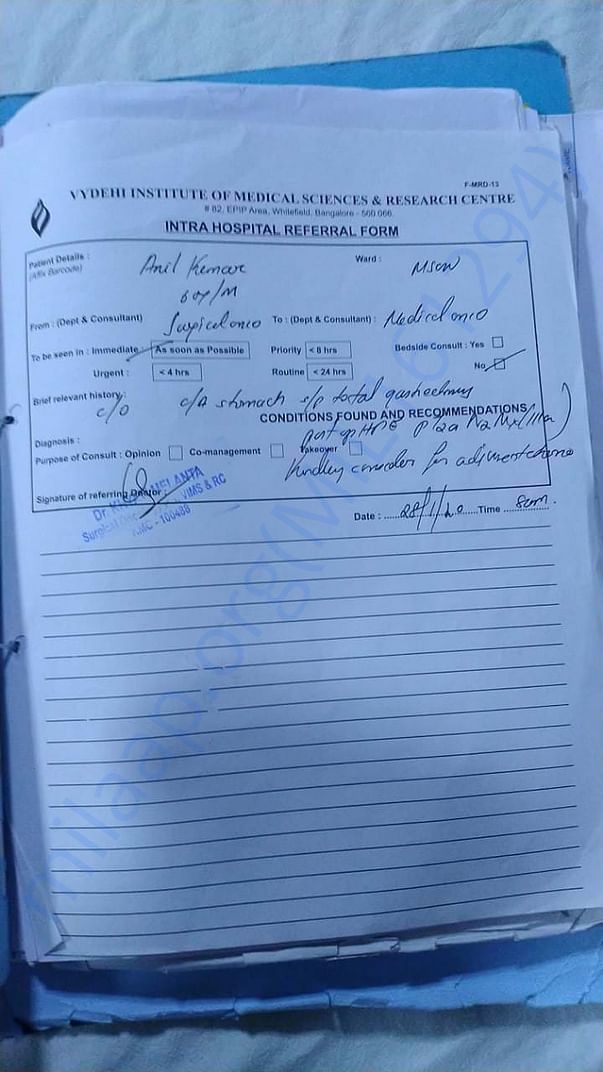 F-MRD-13
VYDEHI INSTITUTE OF MEDICAL SCIENCES & RESEARCH CENTRE
# 82, EPIP Area, Whitefield, Bangalore - 560 066.
INTRA HOSPITAL REFERRAL FORM
Patient Details : Anil Kumar Ward : MSOW
(Affix Barcode)
60y/M
From : (Dept & Consultant) Surgical onco To : (Dept & Consultant) : Medical onco
To be seen in : Immediate As soon as Possible Priority < 8 hrs Bedside Consult : Yes
Urgent : < 4 hrs Routine < 24 hrs No
Brief relevant history: c/o c/A stomach s/p total gastrectomy
CONDITIONS FOUND AND RECOMMENDATIONS
Diagnosis : post op HPE
Purpose of Consult : Opinion Co-management Takeover
Kindly consider for adjuvant chemo
Signature of referring Doctor :
Dr. MELANTA
Surgical VIMS & RC
KMC - 100488
Date : 28/1/20 Time
milaap.org(MPL